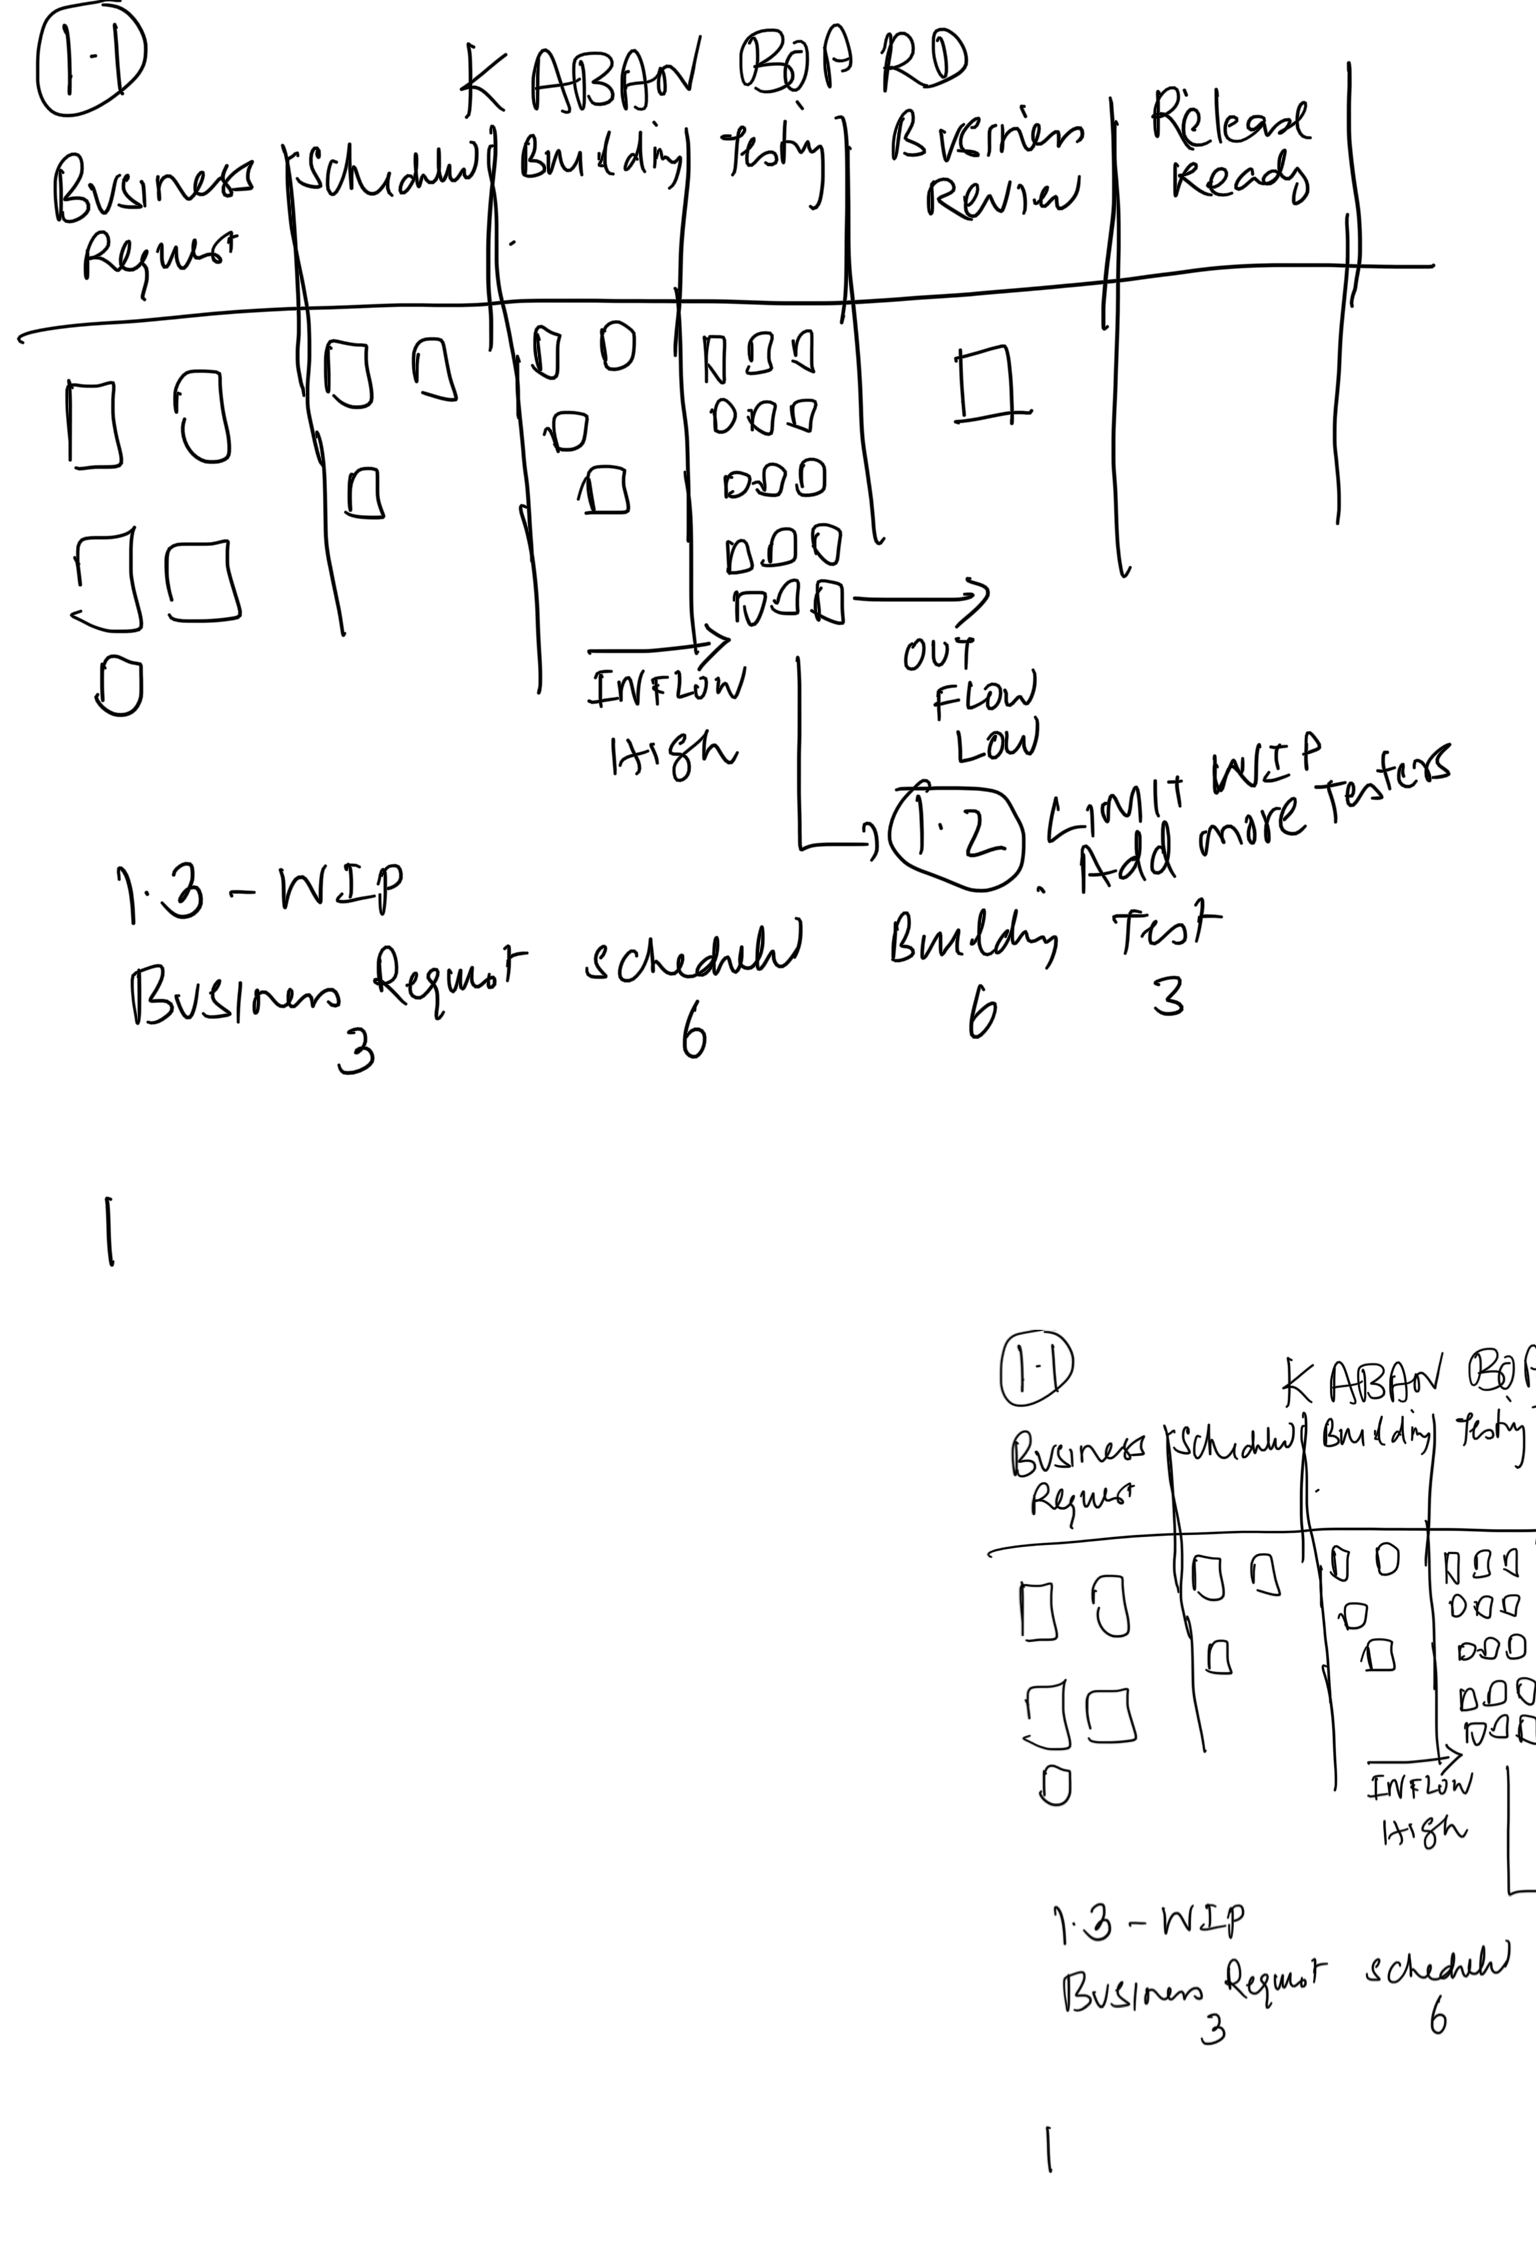 1.1
KABAN BOARD
Business Request
Scheduled
Building
Testing
Business Review
Release Ready
INFLOW
High
OUT
FLOW
LOW
1.2
LIMIT WIP
Add more Testers
1.3 - WIP
Business Request scheduled Building Test
3 6 6 3
1
1.1
KABAN BOA
Business Request
Scheduled
Building
Testing
INFLOW
High
1.3 - WIP
Business Request scheduled
3 6
1